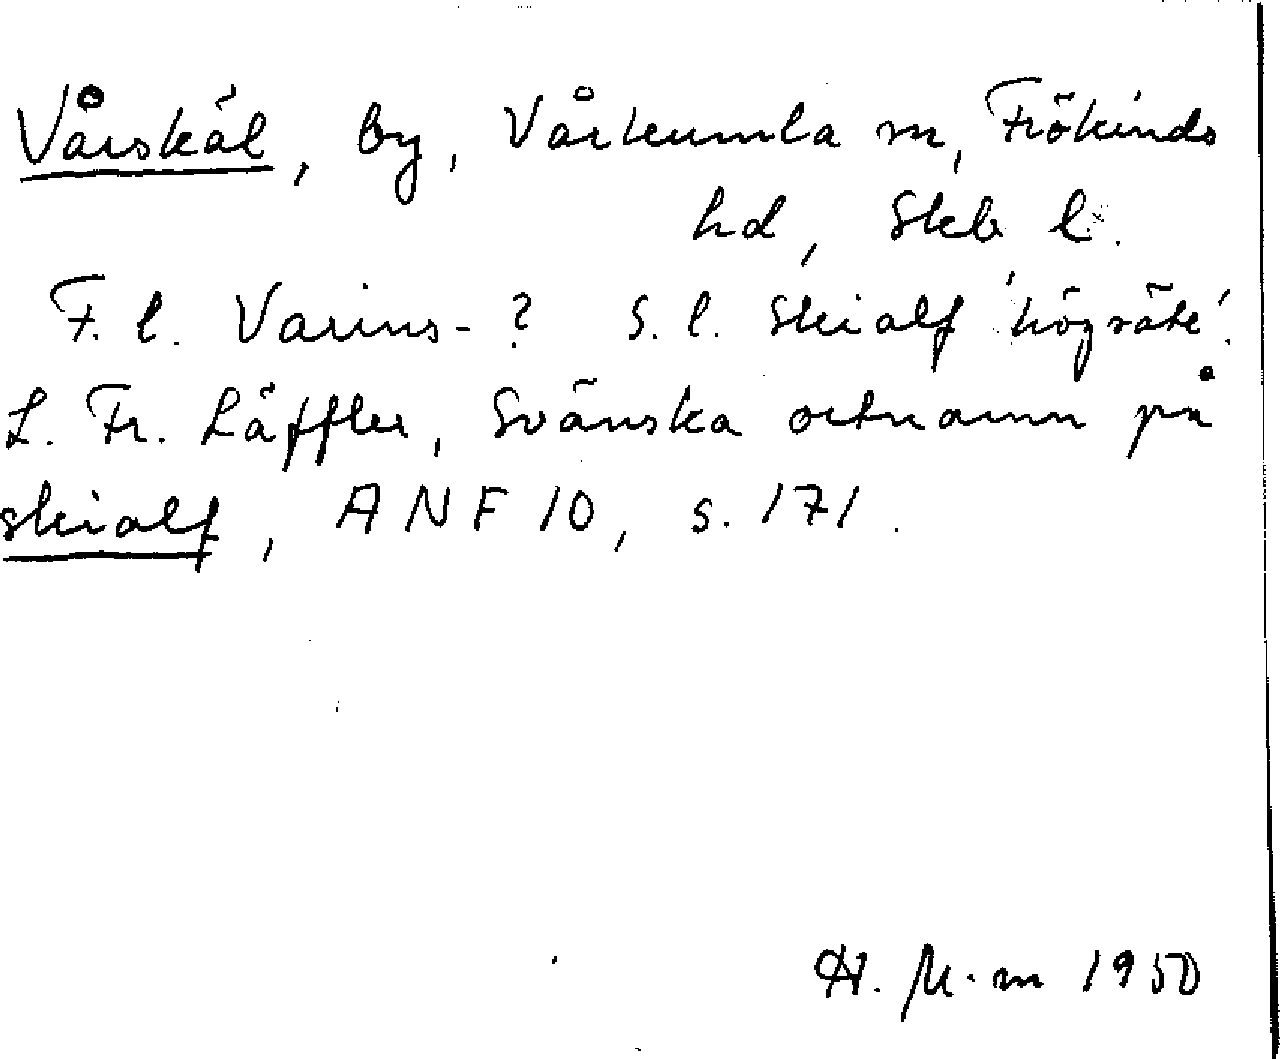 Vårskäl, by, Vårkumla sn, Frökinds
hd, Skb l.
F. l. Varins- ? S. l. skialf 'högsäte'.
L. Fr. Läffler, Svänska ortnamn på
skialf, ANF 10, s. 171.
1950